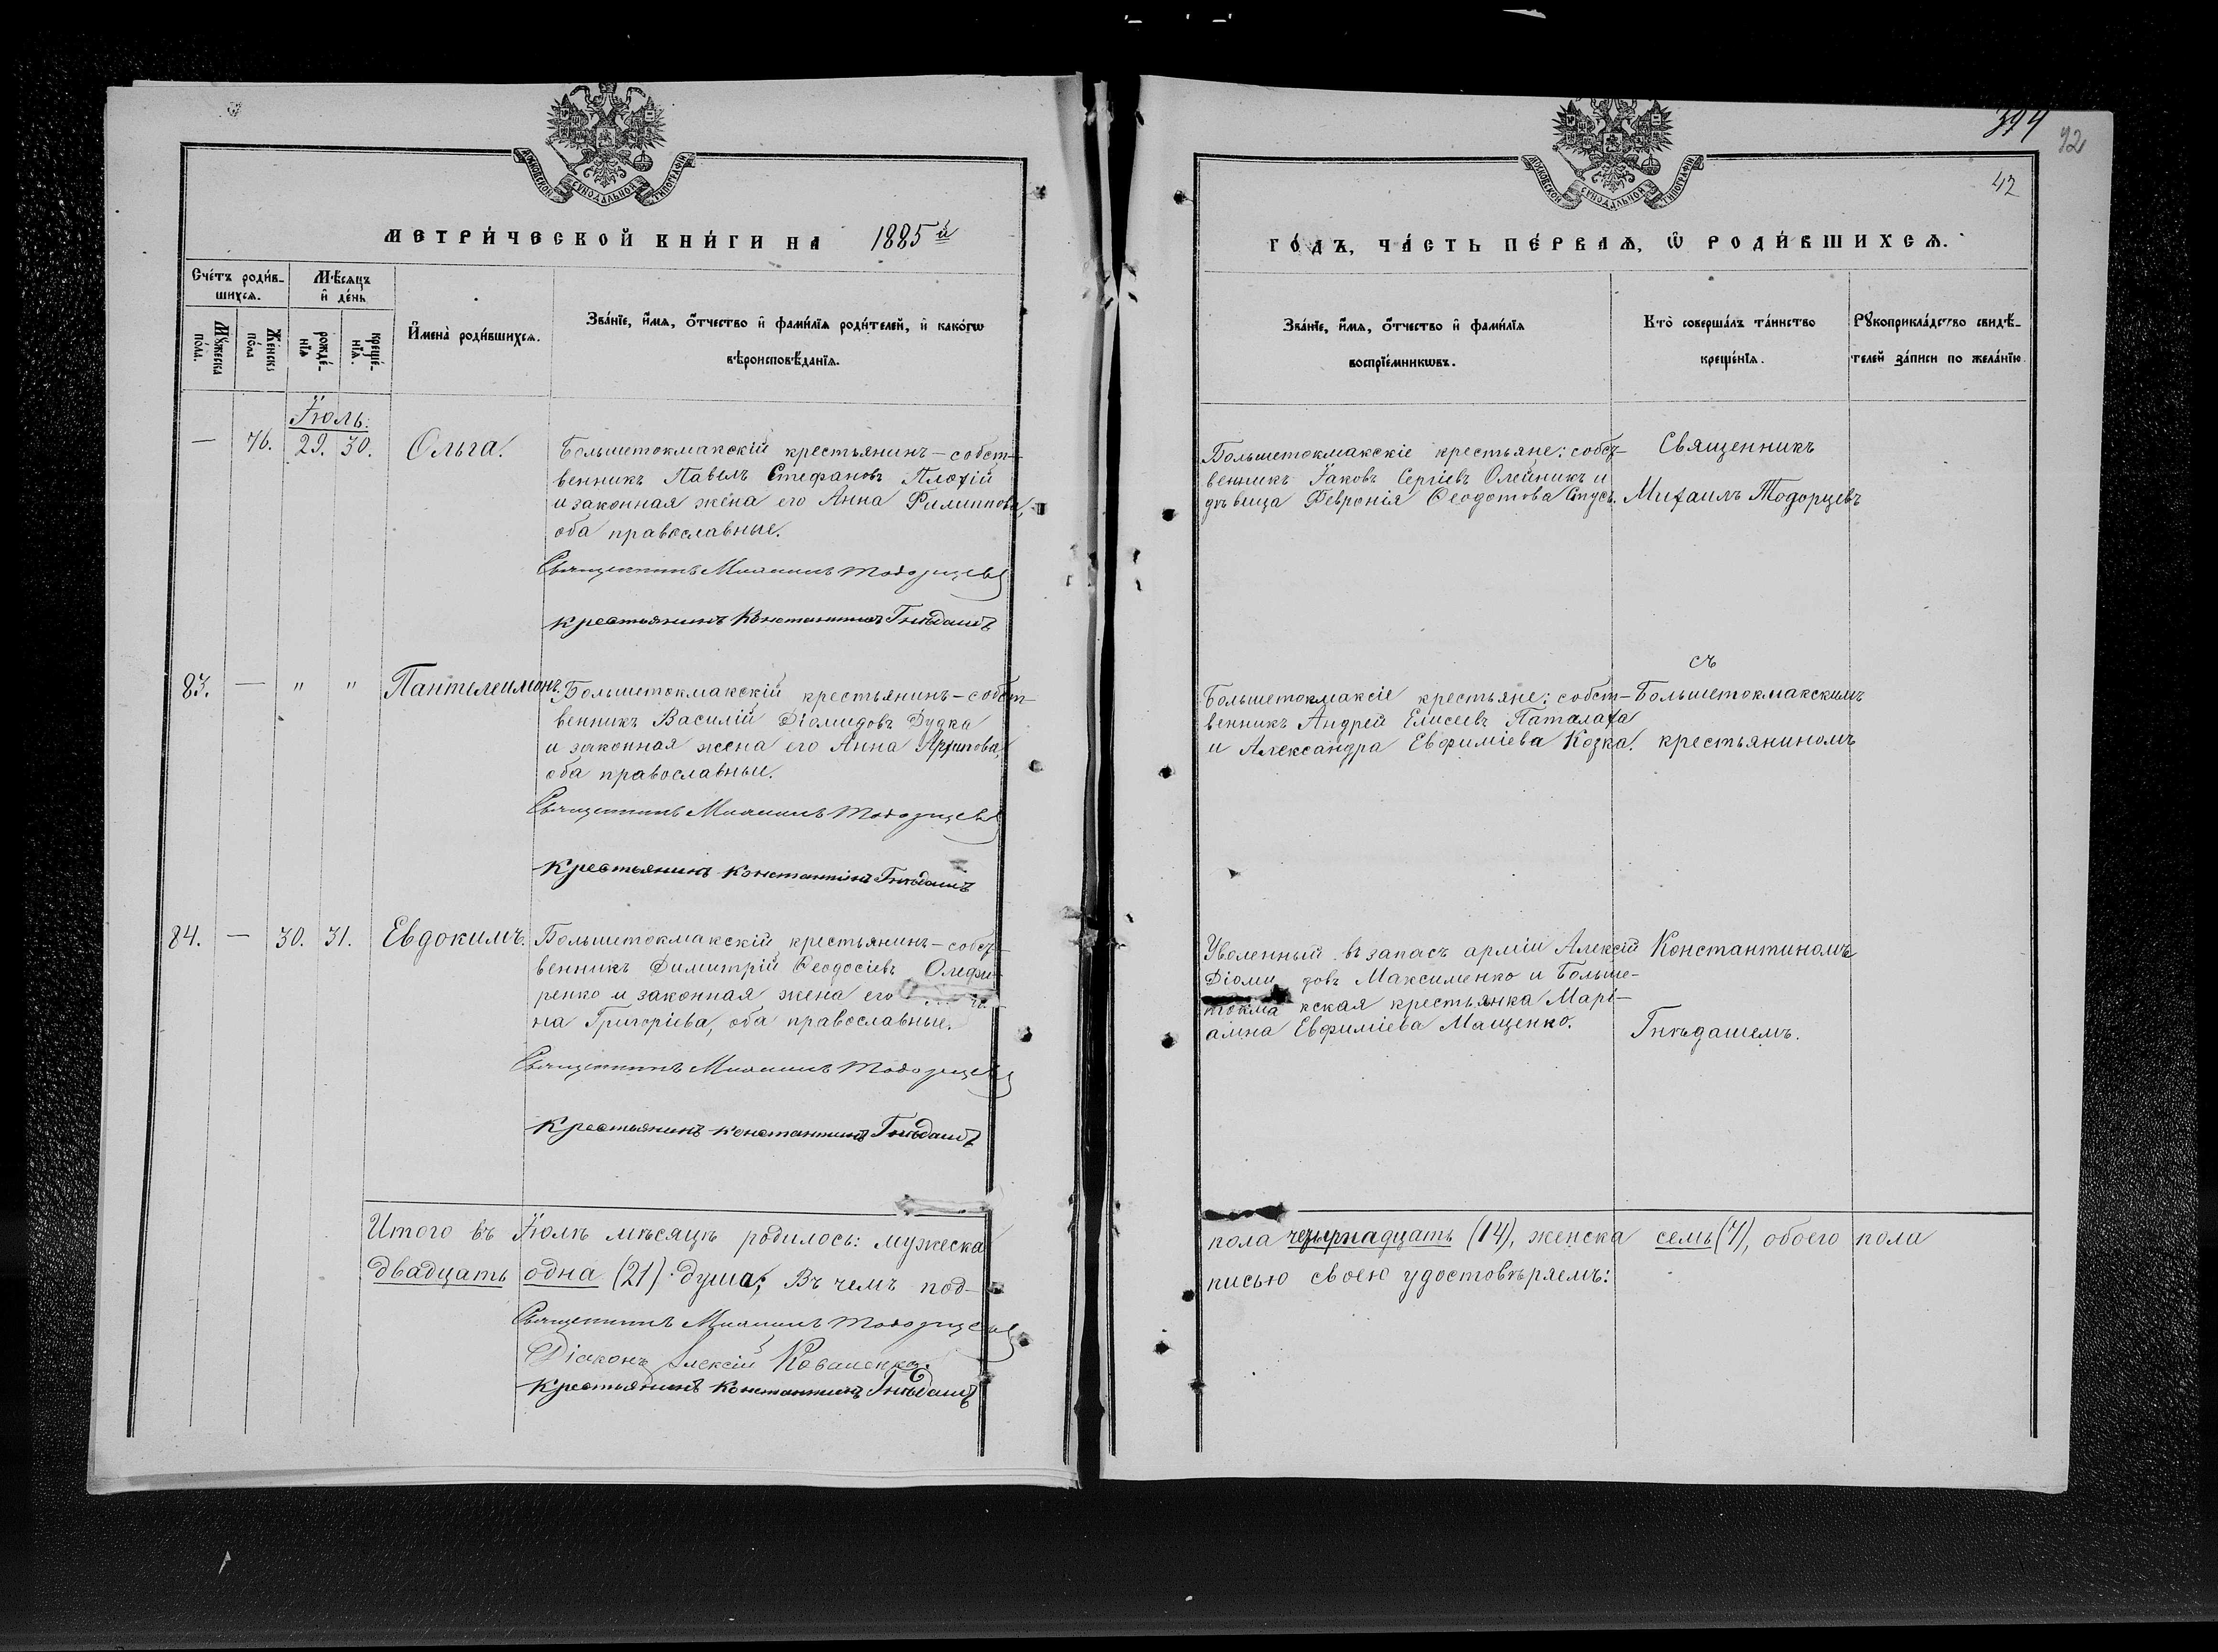 394
92
42
МОСКОВСКОЙ СѴНОДАЛЬНОЙ ТИПОГРАФІИ
МЕТРИ́ЧЕСКОЙ КНИ́ГИ НА 1885й
Сче́тъ роди́в-
шихсѧ.
Мѣ́сѧцъ
и҆ де́нь
Мꙋжеска
по́ла.
Же́нска
по́ла
рожде́-
нїѧ
креще́-
нїѧ.
И҆мена̀ роди́вшихсѧ.
Зва́нїе, и҆́мѧ, ѻ҆́тчество и҆ фами́лїѧ роди́телей, и҆ како́гѡ
вѣроисповѣ́данїѧ.
Іюль:
— 76. 29. 30. Ольга.
Большетокмакскій крестьянинъ-собст-
венникъ Павелъ Стефановъ Плохій
и законная жена его Анна Филиппова,
оба православные.
Священникъ Михаилъ Тодорцевъ
Крестьянинъ Константинъ Гнѣдашъ
83. — " " Пантелеимонъ.
Большетокмакскій крестьянинъ-собст-
венникъ Василій Діомидовъ Дудка
и законная жена его Анна Архипова,
оба православные.
Священникъ Михаилъ Тодорцевъ
Крестьянинъ Константинъ Гнѣдашъ
84. — 30. 31. Евдокимъ.
Большетокмакскій крестьянинъ-собст-
венникъ Димитрій Ѳеодосіевъ Олефи-
ренко и законная жена его
на Григоріева, оба православные.
Священникъ Михаилъ Тодорцевъ
Крестьянинъ Константинъ Гнѣдашъ
Итого въ Іюлѣ мѣсяцѣ родилось: мужеска
двадцать одна (21) душа; Въ чемъ под-
Священникъ Михаилъ Тодорцевъ
Діаконъ Алексій Коваленко.
Крестьянинъ Константинъ Гнѣдашъ
МОСКОВСКОЙ СѴНОДАЛЬНОЙ ТИПОГРАФІИ
ГО́ДЪ, ЧА́СТЬ ПЕ́РВАѦ, Ѡ҆ РОДИ́ВШИХСѦ.
Зва́нїе, и҆́мѧ, ѻ҆́тчество и҆ фами́лїѧ
воспрїе́мникѡвъ.
Кто̀ соверша́лъ та́инство
креще́нїѧ.
Рꙋкоприкла́дство свидѣ́-
телей за́писи по жела́нїю.
Большетокмакскіе крестьяне: собст-
венникъ Іаковъ Сергіевъ Олейникъ и
дѣвица Февронія Ѳеодотова Стусъ.
Священникъ
Михаилъ Тодорцевъ
съ
Большетокмаксіе крестьяне: собст-
венникъ Андрей Елисеевъ Паталаха
и Александра Евфиміева Козка.
Большетокмакскимъ
крестьяниномъ
Уволенный въ запасъ арміи Алексій
Діоми довъ Максименко и Больше-
токма кская крестьянка Марі-
амна Евфиміева Мащенко.
Константиномъ
Гнѣдашемъ.
пола четырнадцать (14), женска семь (7), обоего пола
писью своею удостовѣряемъ: